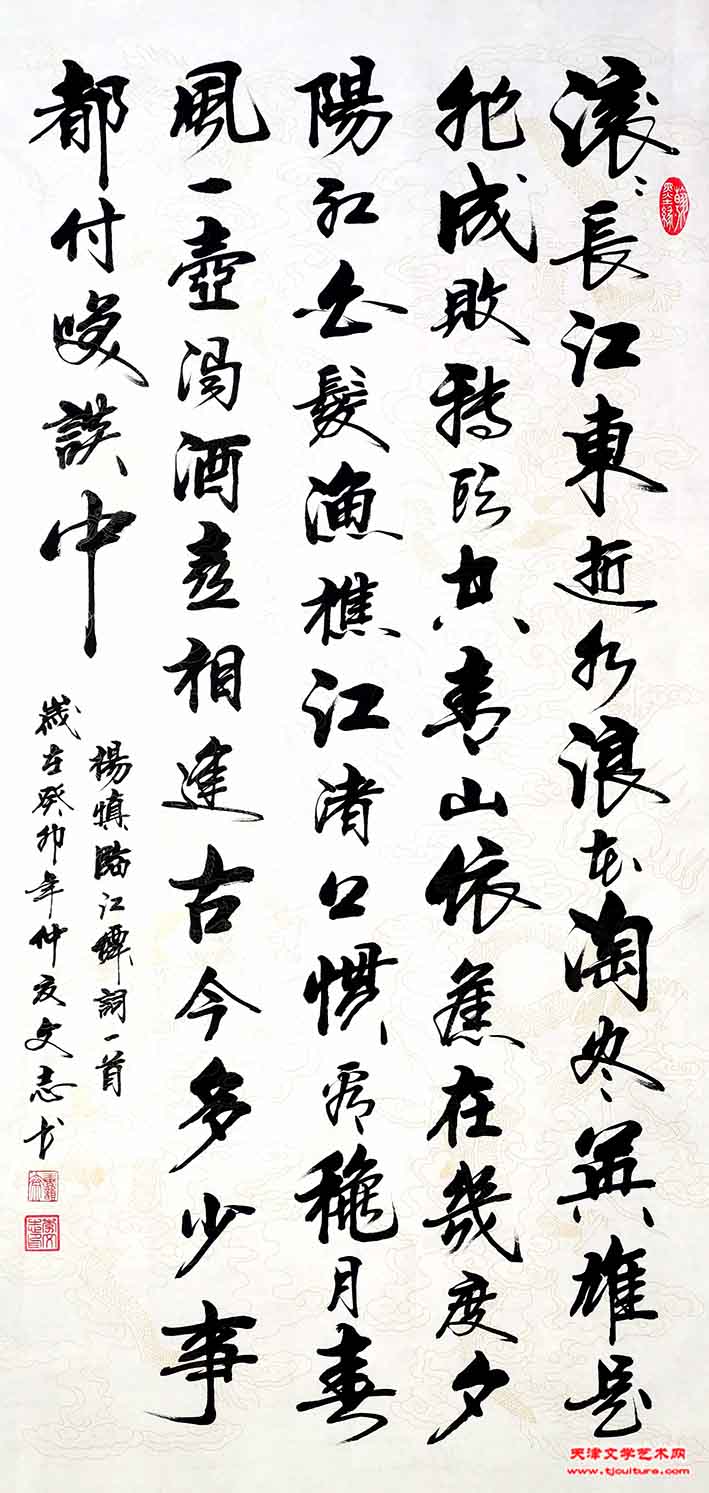 滚滚長江東逝水浪花淘尽英雄是
非成敗轉頭空青山依舊在幾度夕
陽紅白髮漁樵江渚上慣看穐月春
風一壺濁酒喜相逢古今多少事
都付笑談中
楊慎臨江僊詞一首
歲在癸卯年仲夏文志书
天津文学艺术网
www.tjculture.com